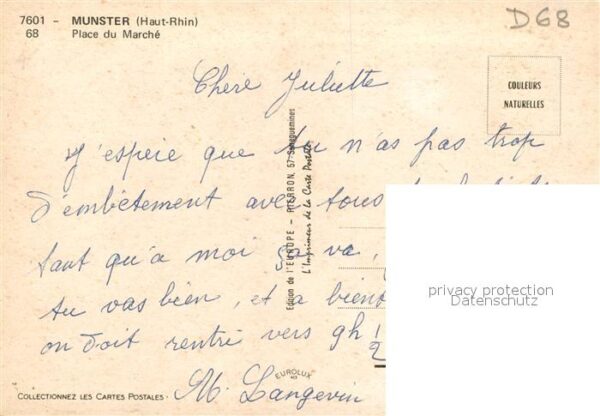 7601 - MUNSTER (Haut-Rhin)
68 Place du Marché
D68
COULEURS
NATURELLES
Chère Juliette
J'espère que tu n'as pas trop
d'embêtement avec tous
tant qu'à moi ça va,
tu vas bien, et a bient
on doit rentré vers 9h 1/2
M. Langevin
Edition de l'EUROPE - PIERRON, 57-Sarreguemines
L'Imprimeur de la Carte Postale
EUROLUX
COLLECTIONNEZ LES CARTES POSTALES
privacy protection
Datenschutz